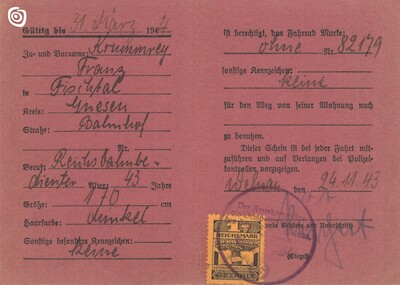 Gültig bis 31. März 194
Zu- und Vorname: Kruchmrey
Franz
in Fischtal
Kreis: Gnesen
Straße: Bahnhof
Beruf: Reichsbahnbe-
diensteter Alter 43 Jahre
Größe: 170 cm
Haarfarbe: dunkel
Sonstige besondere Kennzeichen:
keine
ist berechtigt, das Fahrrad Marke:
ohne Nr. 82179
sonstige Kennzeichen:
keine
für den Weg von seiner Wohnung nach
zu benutzen.
Dieser Schein ist bei jeder Fahrt mit-
zuführen und auf Verlangen bei Polizei-
kontrollen vorzuzeigen.
Welnau den 24.11.43
Behörde und Unterschrift
(Siegel)
1
REICHSMARK